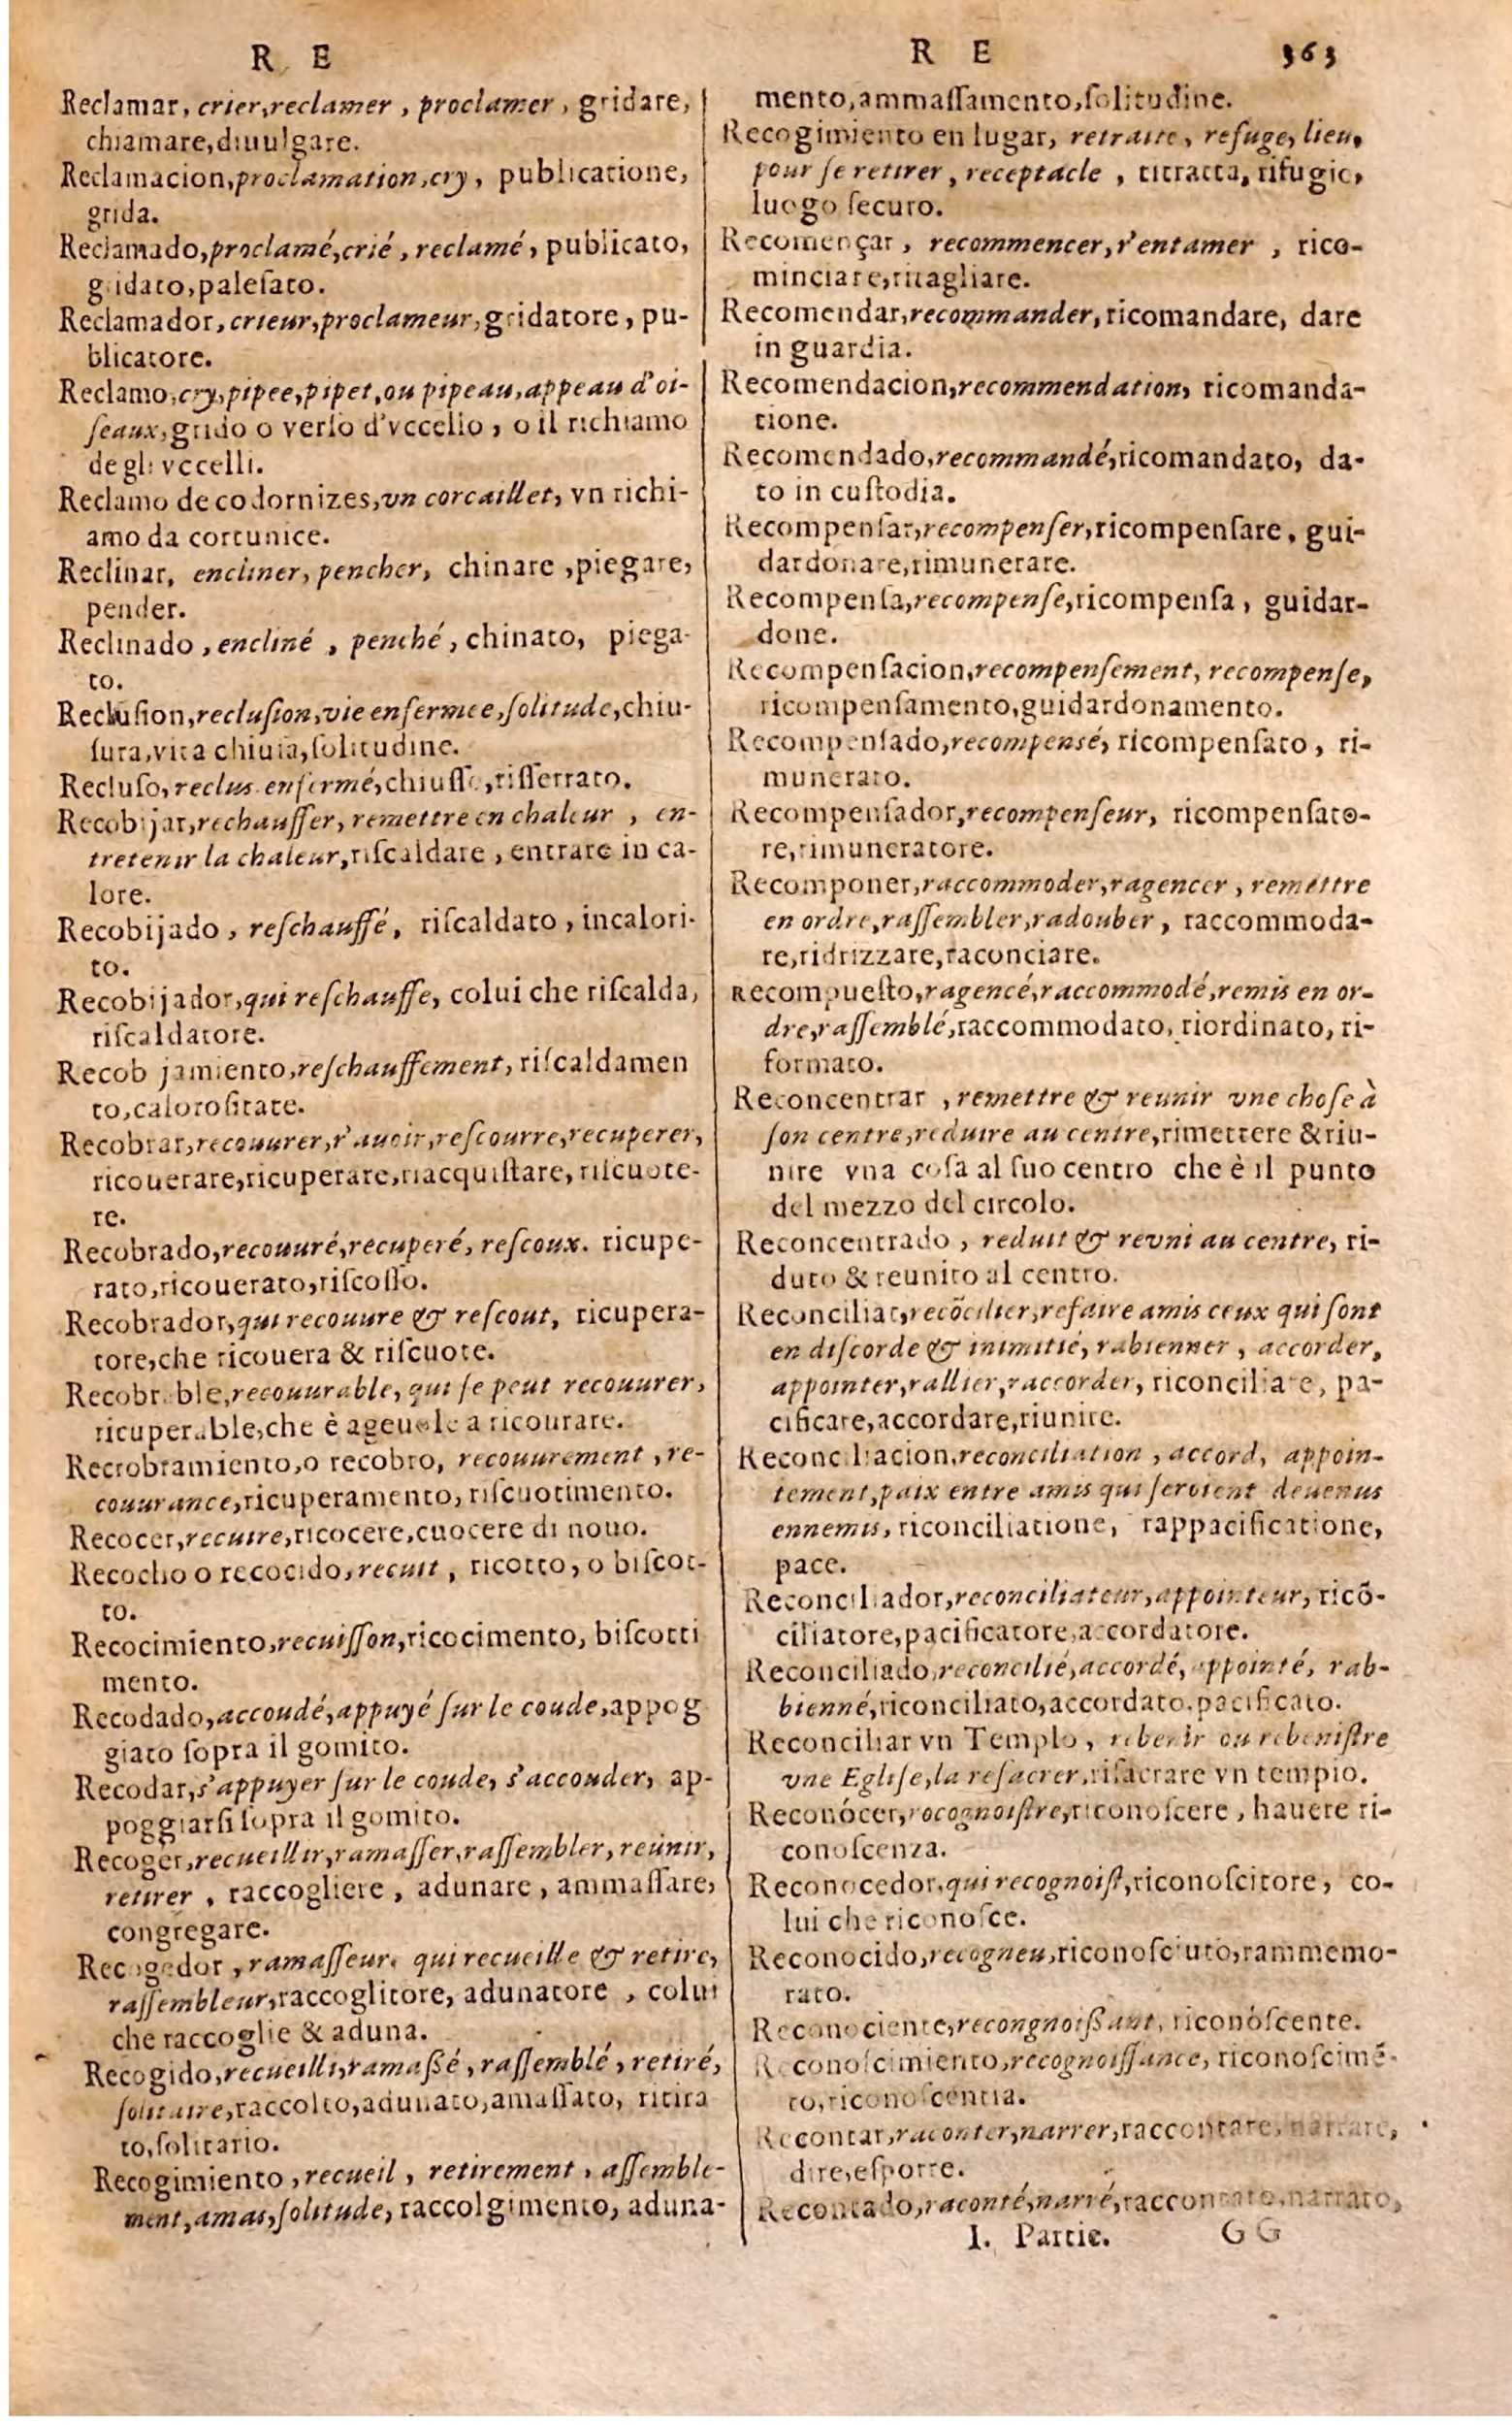 R E
Reclamar, crier, reclamer, proclamer, gridare,
chiamare, diuulgare.
Reclamacion, proclamation, cry, publicatione,
grida.
Reclamado, proclamé, crié, reclamé, publicato,
gridato, palesato.
Reclamador, crieur, proclameur, gridatore, pu-
blicatore.
Reclamo, cry, pipee, pipet, ou pipeau, appeau d'oi-
ſeaux, grido o verſo d'vccello, o il richiamo
degli vccelli.
Reclamo de codornizes, vn corcaillet, vn richi-
amo da cortunice.
Reclinar, encliner, pencher, chinare, piegare,
pender.
Reclinado, encliné, penché, chinato, piega-
to.
Recluſion, recluſion, vie enfermee, ſolitude, chiu-
ſura, vita chiuſa, ſolitudine.
Recluſo, reclus enfermé, chiuſſo, riſſerrato.
Recobijar, rechauffer, remettre en chaleur, en-
tretenir la chaleur, riſcaldare, entrare in ca-
lore.
Recobijado, reſchauffé, riſcaldato, incalori-
to.
Recobijador, qui reſchauffe, colui che riſcalda,
riſcaldatore.
Recob jamiento, reſchauffement, riſcaldamen
to, caloroſitate.
Recobrar, recouurer, r'auoir, reſcourre, recuperer,
ricouerare, ricuperare, riacquiſtare, riſcuote-
re.
Recobrado, recouuré, recuperé, reſcoux. ricupe-
rato, ricouerato, riſcoſſo.
Recobrador, qui recouure & reſcout, ricupera-
tore, che ricouera & riſcuote.
Recobrable, recouurable, qui ſe peut recouurer,
ricuperable, che è ageuole a ricourare.
Recrobramiento, o recobro, recouurement, re-
couurance, ricuperamento, riſcuotimento.
Recocer, recuire, ricocere, cuocere di nouo.
Recocho o recocido, recuit, ricotto, o biſcot-
to.
Recocimiento, recuiſſon, ricocimento, biſcotti
mento.
Recodado, accoudé, appuyé ſur le coude, appog
giato ſopra il gomito.
Recodar, s'appuyer ſur le coude, s'accouder, ap-
poggiarſi ſopra il gomito.
Recoger, recueillir, ramaſſer, raſſembler, reünir,
retirer, raccogliere, adunare, ammaſſare,
congregare.
Recogedor, ramaſſeur. qui recueille & retire,
raſſembleur, raccoglitore, adunatore, colui
che raccoglie & aduna.
Recogido, recueilli, ramaßé, raſſemblé, retiré,
ſolitaire, raccolto, adunato, amaſſato, ritira
to, ſolitario.
Recogimiento, recueil, retirement, aſſemble-
ment, amas, ſolitude, raccolgimento, aduna-
R E 363
mento, ammaſſamento, ſolitudine.
Recogimiento en lugar, retraite, refuge, lieu,
pour ſe retirer, receptacle, titratta, rifugio,
luogo ſecuro.
Recomençar, recommencer, r'entamer, rico-
minciare, ritagliare.
Recomendar, recommander, ricomandare, dare
in guardia.
Recomendacion, recommendation, ricomanda-
tione.
Recomendado, recommandé, ricomandato, da-
to in cuſtodia.
Recompenſar, recompenſer, ricompenſare, gui-
dardonare, rimunerare.
Recompenſa, recompenſe, ricompenſa, guidar-
done.
Recompenſacion, recompenſement, recompenſe,
ricompenſamento, guidardonamento.
Recompenſado, recompensé, ricompenſato, ri-
munerato.
Recompenſador, recompenſeur, ricompenſato-
re, rimuneratore.
Recomponer, raccommoder, ragencer, remettre
en ordre, raſſembler, radouber, raccommoda-
re, ridrizzare, raconciare.
Recompueſto, ragencé, raccommodé, remis en or-
dre, raſſemblé, raccommodato, riordinato, ri-
formato.
Reconcentrar, remettre & reunir vne choſe à
ſon centre, reduire au centre, rimettere & riu-
nire vna coſa al ſuo centro che è il punto
del mezzo del circolo.
Reconcentrado, reduit & revni au centre, ri-
duto & reunito al centro.
Reconciliar, recõcilier, refaire amis ceux qui ſont
en diſcorde & inimitié, rabienner, accorder,
appointer, rallier, raccorder, riconciliare, pa-
cificare, accordare, riunire.
Reconciliacion, reconciliation, accord, appoin-
tement, paix entre amis qui ſeroient deuenus
ennemis, riconciliatione, rappacificatione,
pace.
Reconciliador, reconciliateur, appointeur, ricõ-
ciliatore, pacificatore, accordatore.
Reconciliado, reconcilié, accordé, appointé, rab-
bienné, riconciliato, accordato, pacificato.
Reconciliar vn Templo, rebenir ou rebeniſtre
vne Egliſe, la reſacrer, riſacrare vn tempio.
Reconócer, rocognoiſtre, riconoſcere, hauere ri-
conoſcenza.
Reconocedor, qui recognoiſt, riconoſcitore, co-
lui che riconoſce.
Reconocido, recogneu, riconoſciuto, rammemo-
rato.
Reconociente, recongnoißant, riconóſcente.
Reconoſcimiento, recognoiſſance, riconoſcimẽ-
to, riconoſcentia.
Recontar, raconter, narrer, raccontare, narrare,
dire, eſporre.
Recontado, raconté, narré, raccontato, narrato,
I. Partie. GG